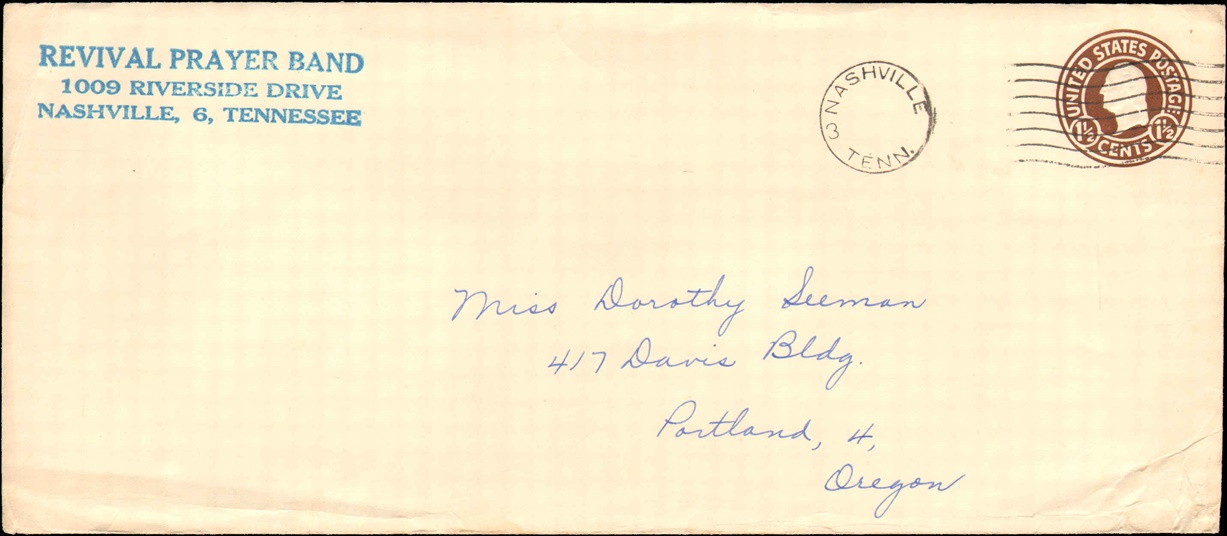 REVIVAL PRAYER BAND
1009 RIVERSIDE DRIVE
NASHVILLE, 6, TENNESSEE
NASHVILLE
3
TENN.
UNITED STATES POSTAGE
1½ CENTS 1½
Miss Dorothy Seeman
417 Davis Bldg.
Portland, 4,
Oregon